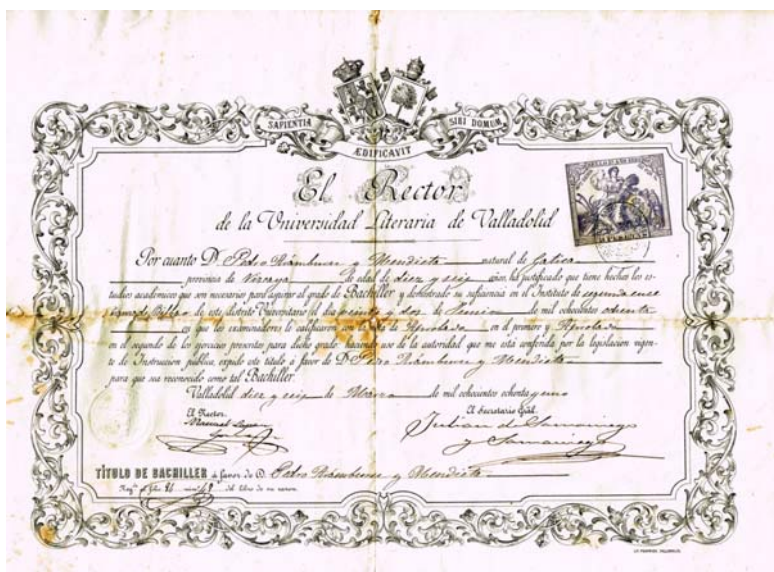 SAPIENTIA SIBI DOMUM
ÆDIFICAVIT
El Rector
de la Universidad Literaria de Valladolid
Por cuanto D. Pedro y Mendieta natural de
provincia de Vizcaya de edad de diez y seis años, ha justificado que tiene hechos los es-
tudios académicos que son necesarios para aspirar al grado de Bachiller y demostrado su suficiencia en el Instituto de segunda ense
ñanza de Bilbao de este distrito Universitario el dia veinte y dos de Junio de mil ochocientos ochenta
en que los examinadores le calificaron con la nota de Aprobado en el primero y Aprobado
en el segundo de los ejercicios prescritos para dicho grado: haciendo uso de la autoridad que me está conferida por la legislacion vigen-
te de Instruccion pública, expido este título á favor de D. Pedro y Mendieta
para que sea reconocido como tal Bachiller.
Valladolid diez y seis de Marzo de mil ochocientos ochenta y uno
El Rector. El Secretario Gral.
Manuel Lopez Julian de Samaniego
y Samaniego
TÍTULO DE BACHILLER á favor de D. Pedro y Mendieta
del libro